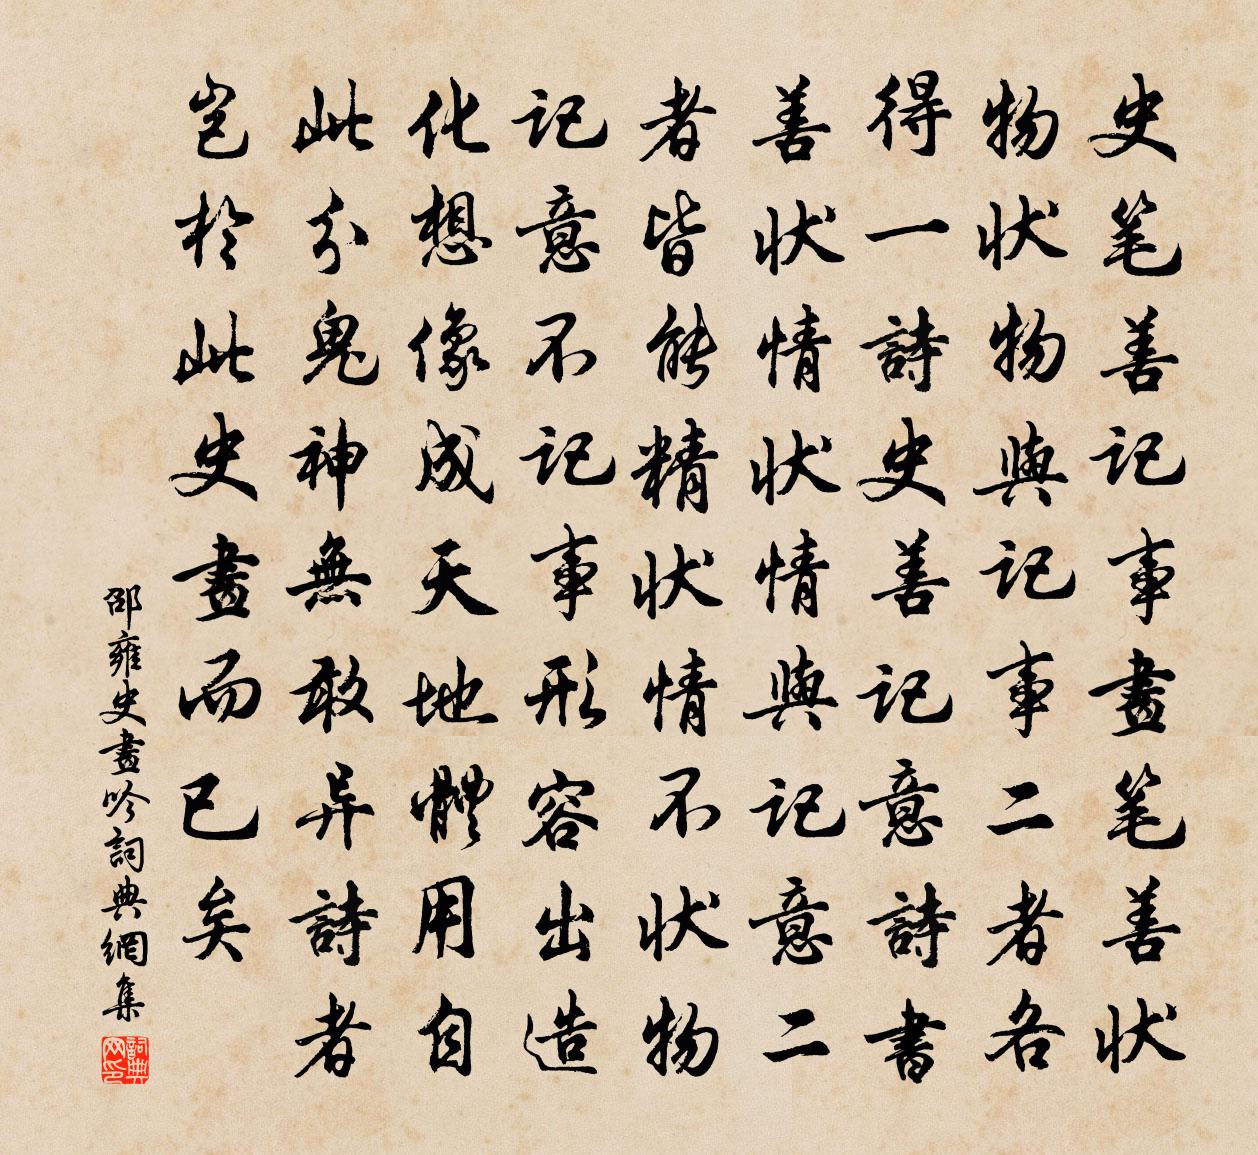 史笔善记事畫笔善状
物状物與记事二者各
得一詩史善记意詩書
善状情状情與记意二
者皆能精状情不状物
记意不记事形容出造
化想像成天地體用自
此分鬼神無敢异詩者
豈於此史畫而已矣
邵雍史畫吟詞典網集
詞典网印